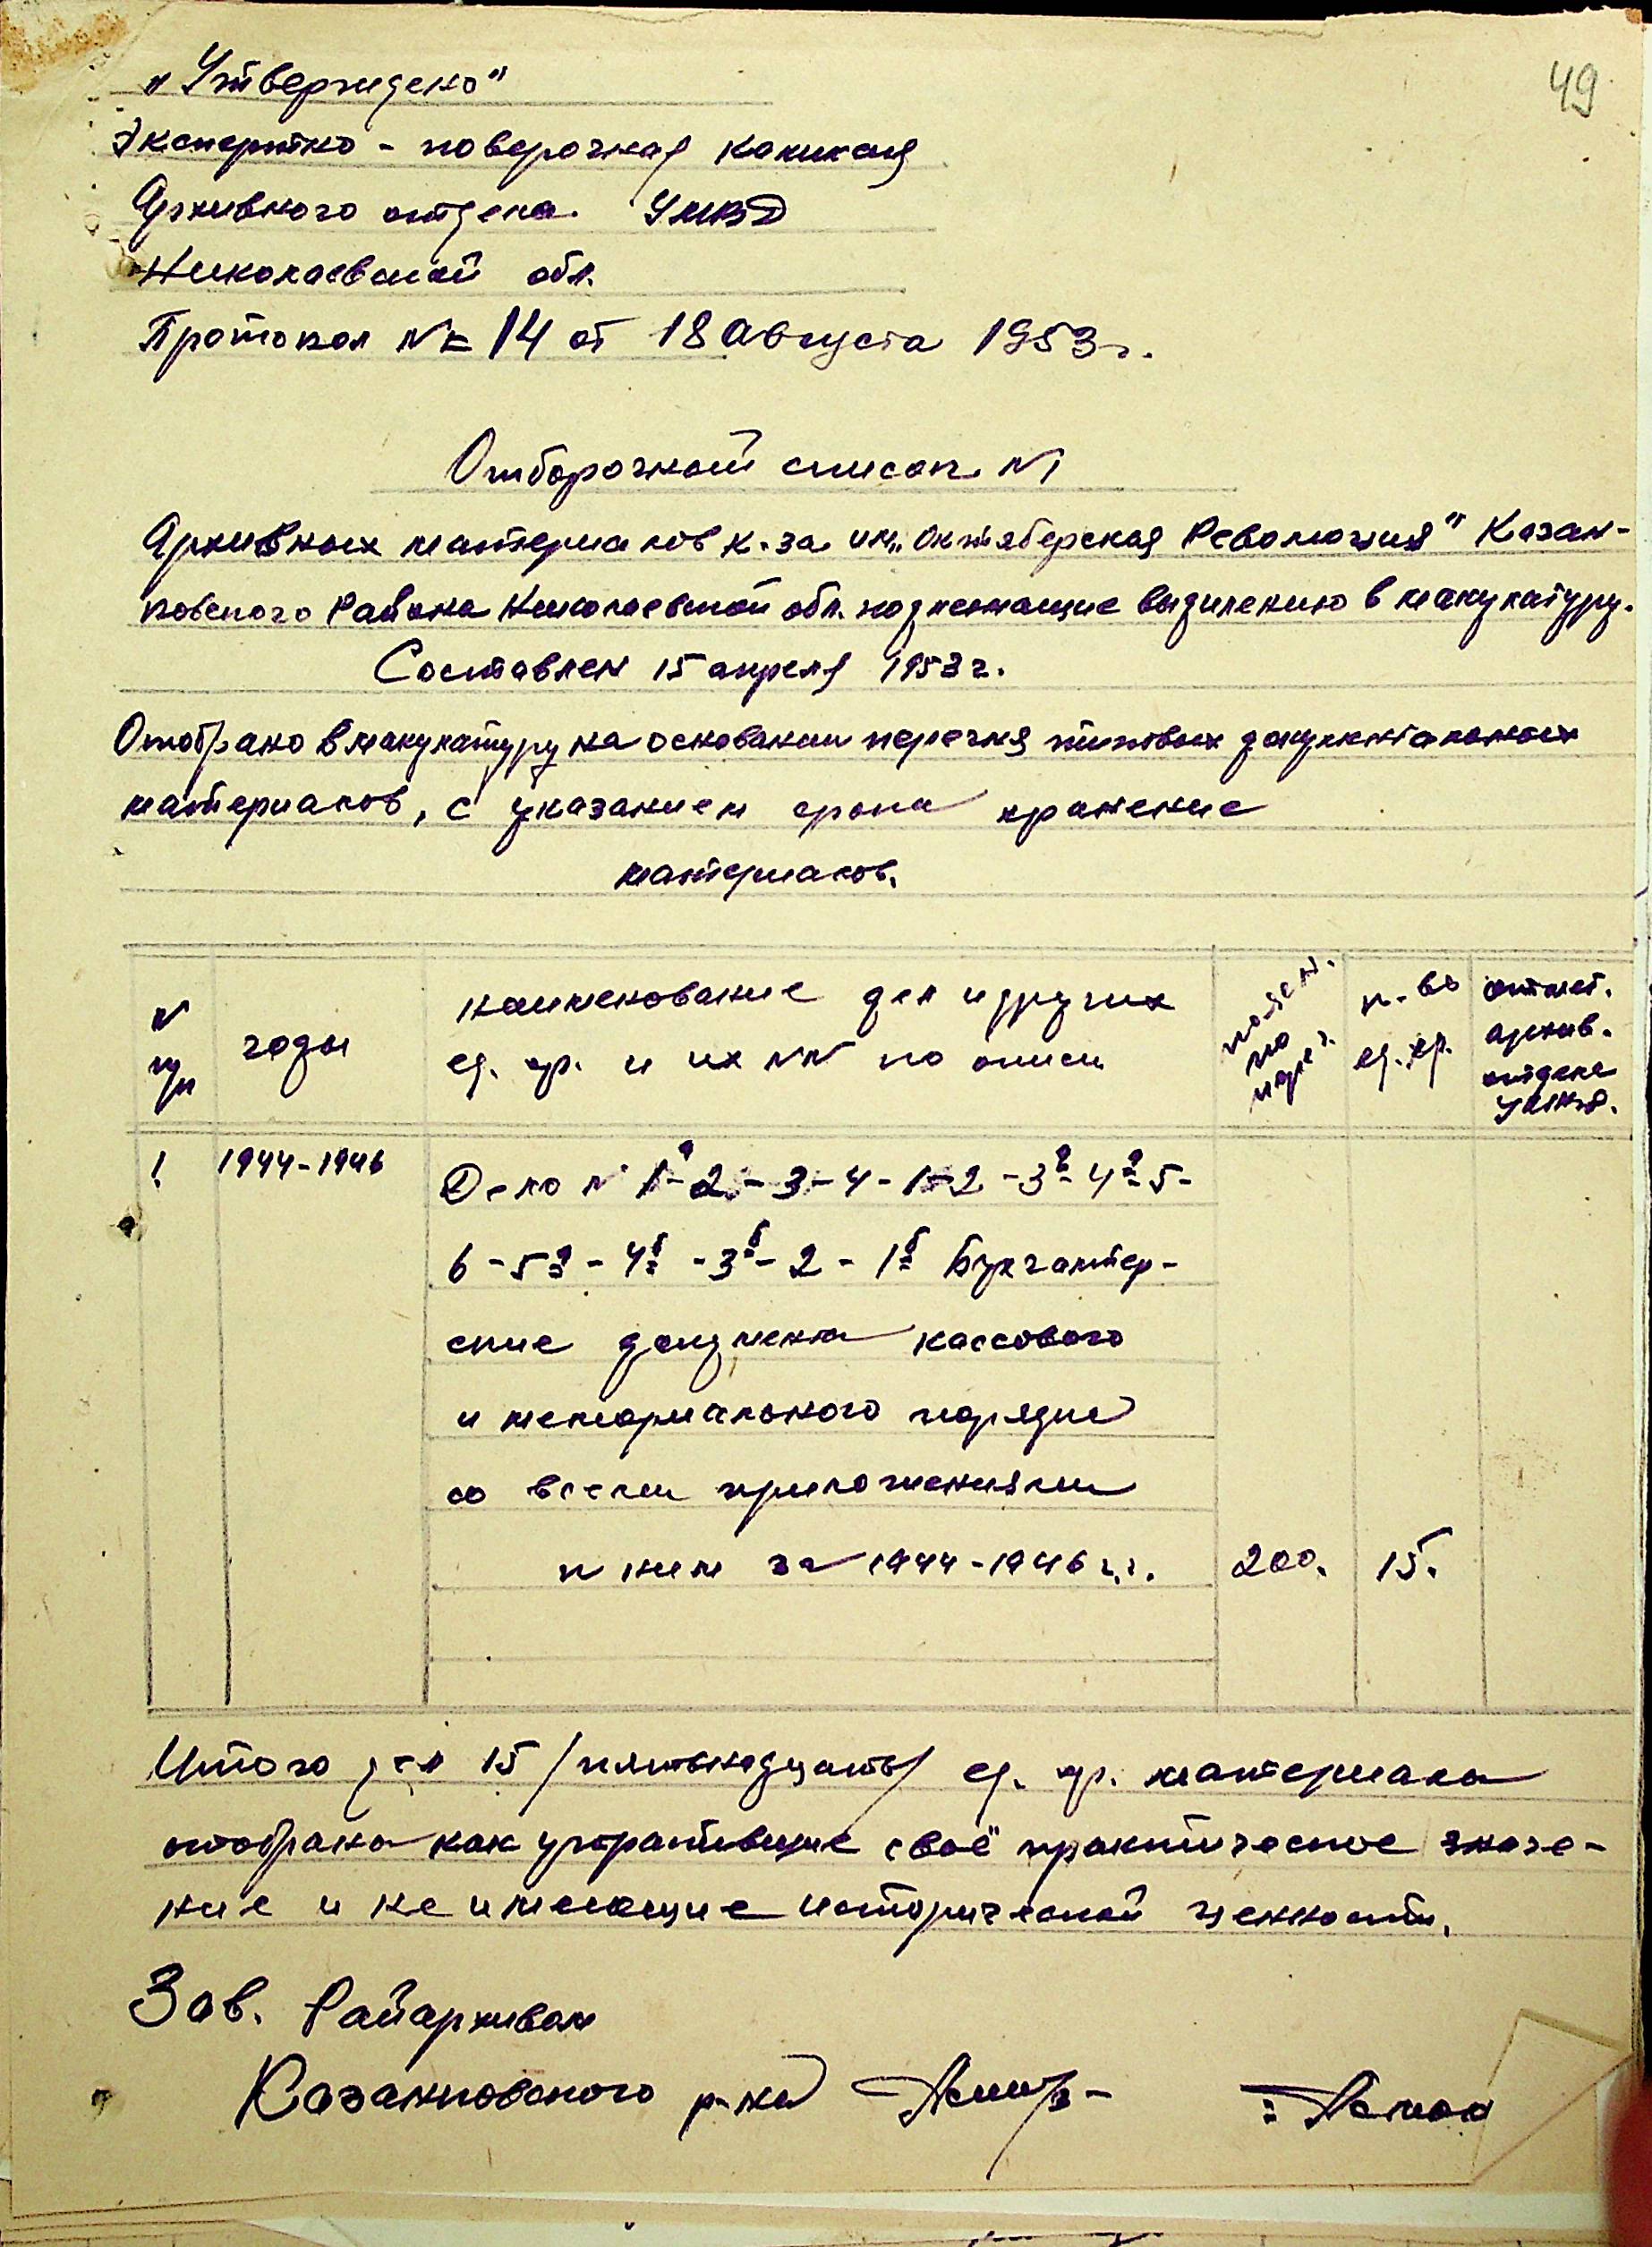 49
„Утверждено"
Экспертно - поверочная комисия
Архивного отдела УМВД
Николаевской обл.
Протокол № 14 от 18 Августа 1953 г.
Отборочный список №1
Архивных материалов к-за им „Октяберская Революция" Казан-
ковского Района Николаевской обл. подлежащие выдилению в макулатуру.
Составлен 15 апреля 1953 г.
Отобрано в макулатуру на основании перечня типовых документальных
материалов, с указанием срока хранение
материалов.
№ п/п
годы
наименование дел и других
ед. хр. и их №№ по описи
по
переч.
к-во
ед. хр.
отмет.
архив.
отдела
УМВД.
1 1944-1946 Дело № 1а-2-3-4-1-2-3а-4а-5-
6-5а-4б-3б-2-1б Бухгалтер-
ские документа кассового
и материального порядка
со всеми приложениями
к ним за 1944-1946 г.г. 200. 15.
Итого дел 15 /пятьнадцать/ ед. хр. материала
отобрана как утратившие своё практическое значе-
ние и не имеющие исторической ценности.
Зав. Райархивом
Казанковского р-на